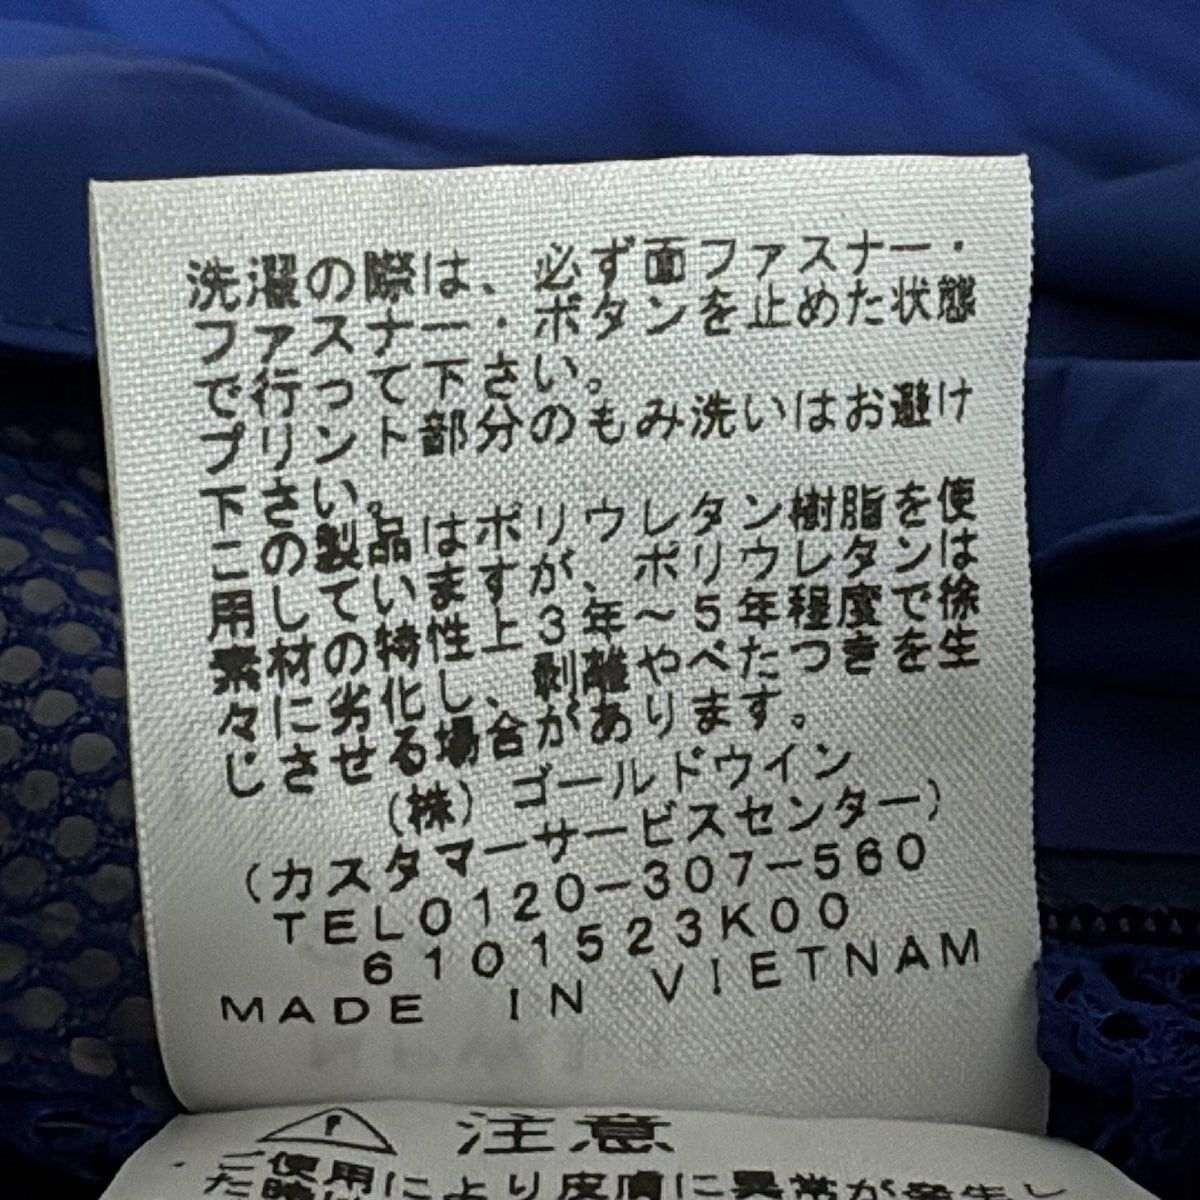 洗濯の際は、必ず面ファスナー・
ファスナー・ボタンを止めた状態
で行って下さい。
プリント部分のもみ洗いはお避け
下さい。
この製品はポリウレタン樹脂を使
用していますが、ポリウレタンは
素材の特性上3年～5年程度で徐
々に劣化し、剥離やべたつきを生
じさせる場合があります。
(株)ゴールドウイン
(カスタマーサービスセンター)
TEL0120-307-560
6101523K00
MADE IN VIETNAM
注意
ご使用により皮膚に異常が発生し